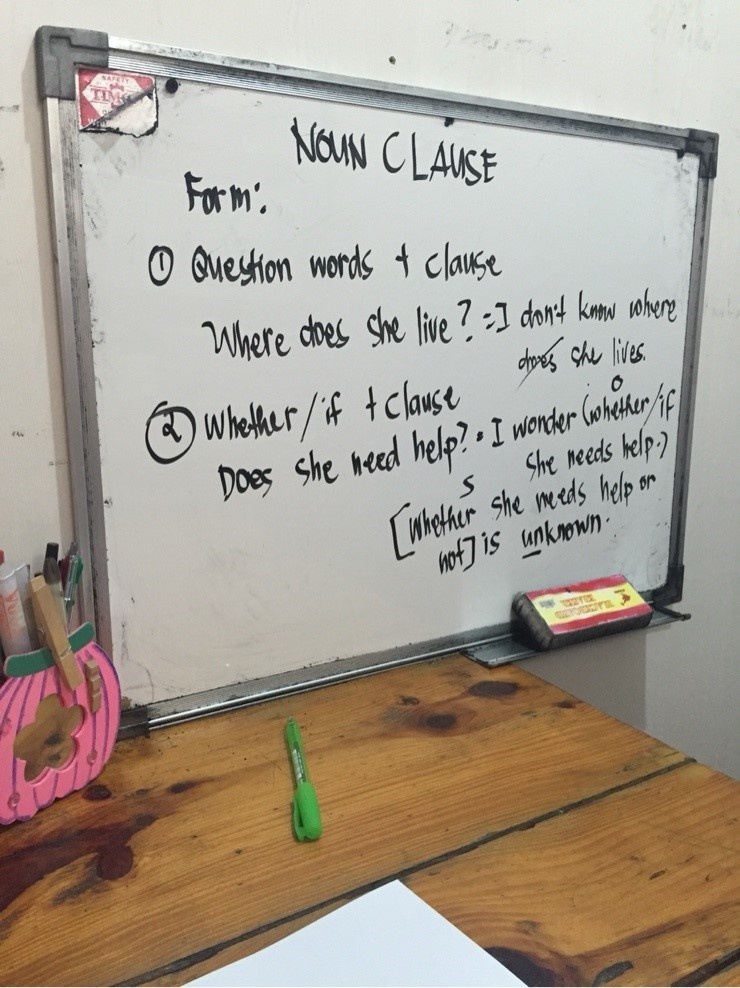 SAFETY
NOUN CLAUSE
Form:
① Question words + clause
Where does she live? = I don't know where
does she lives.
② Whether/if + clause
O
Does she need help? = I wonder (whether/if
she needs help.)
S
[Whether she needs help or
not] is unknown.